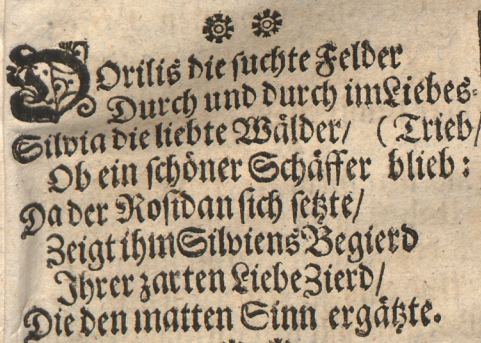 Dorilis die suchte Felder
Durch und durch im Liebes-
Silvia die liebte Wälder/ (Trieb/
Ob ein schöner Schäffer blieb:
Da der Rosidan sich setzte/
Zeigt ihm Silviens Begierd
Ihrer zarten Liebe Zierd/
Die den matten Sinn ergätzte.